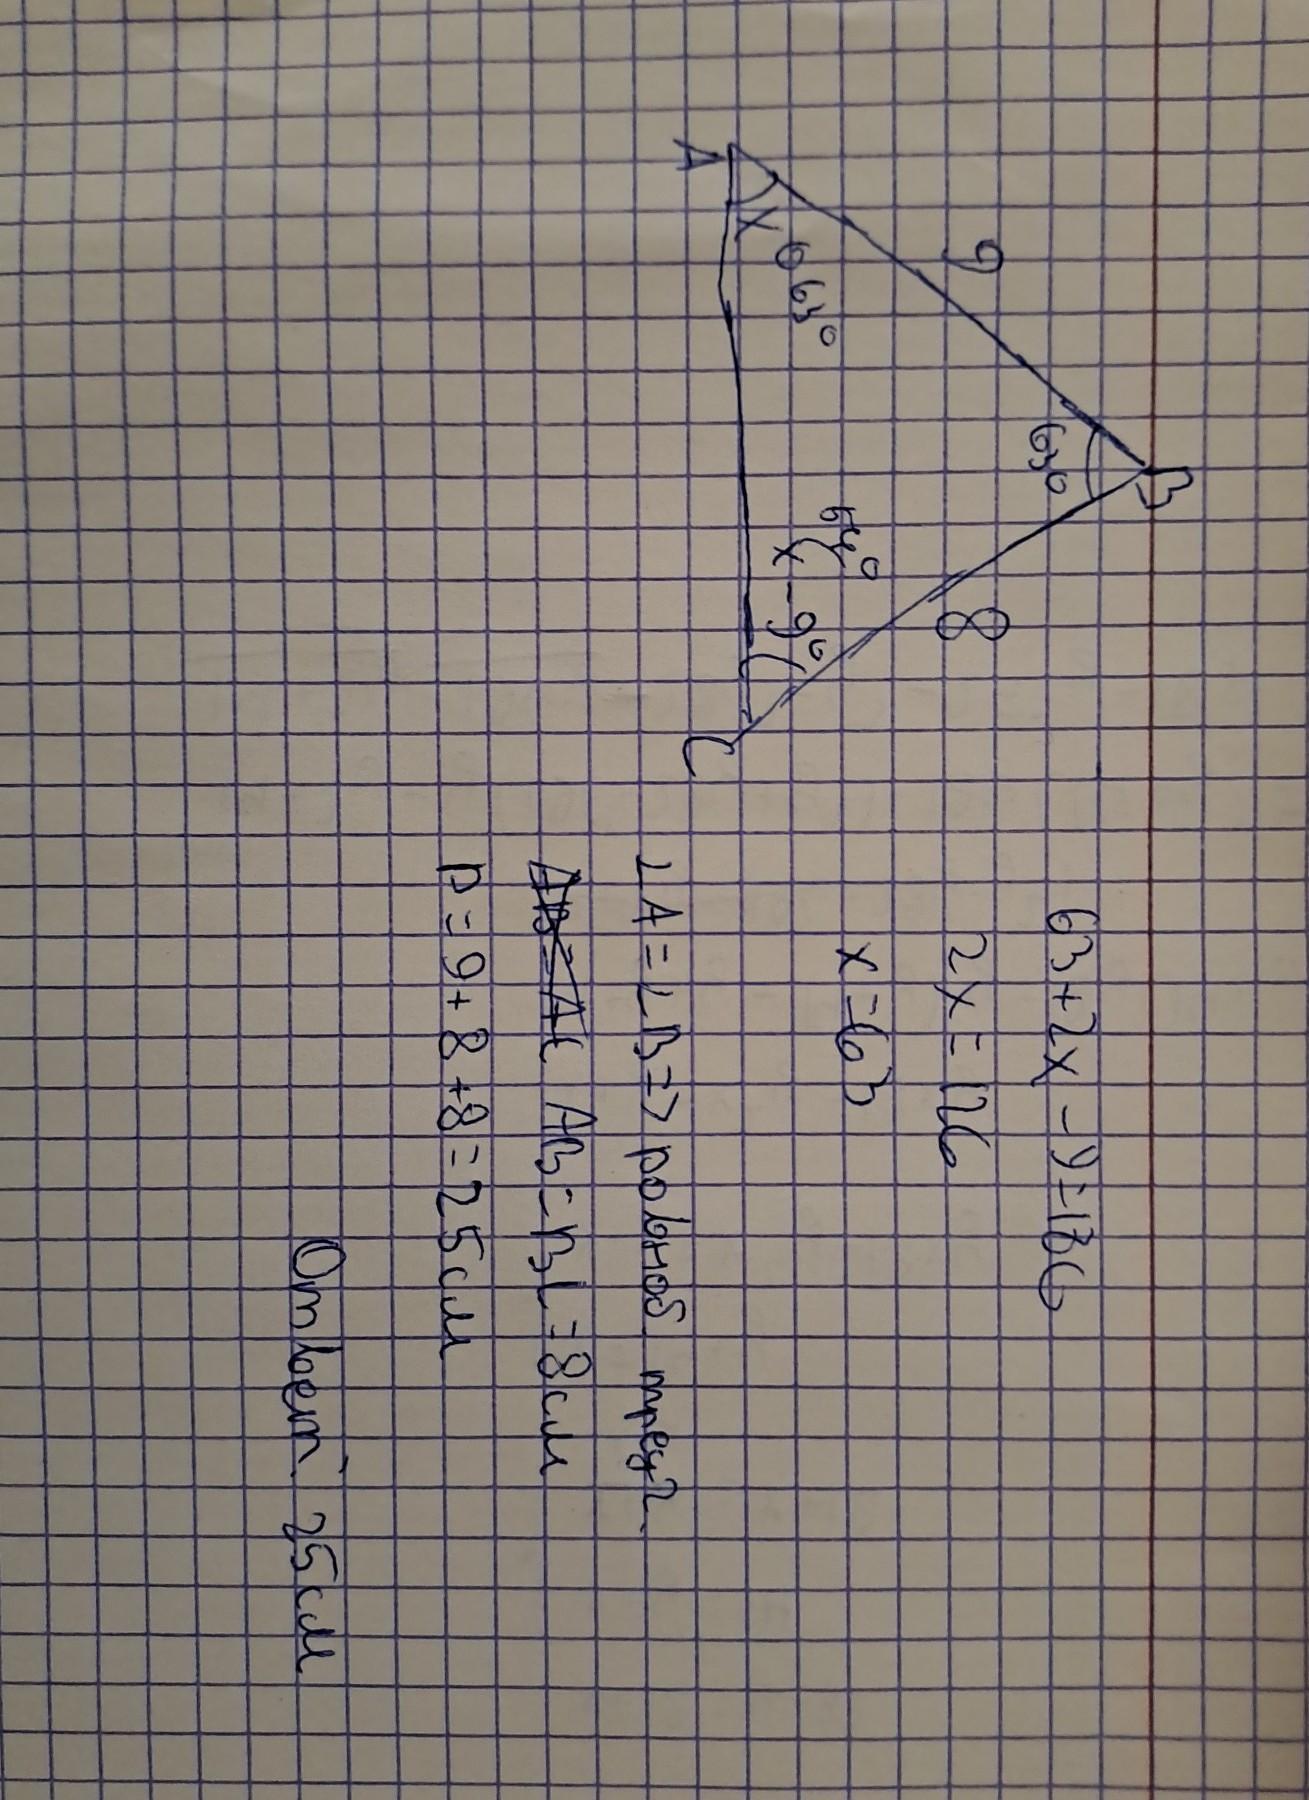 B
9
8
63°
A
x
63°
54°
x-9°
C
63+2x-9=180
2x=126
x=63
∠A=∠B=> равноб треуг.
AB=AC AB=BC=8см
p=9+8+8=25см
Ответ: 25см